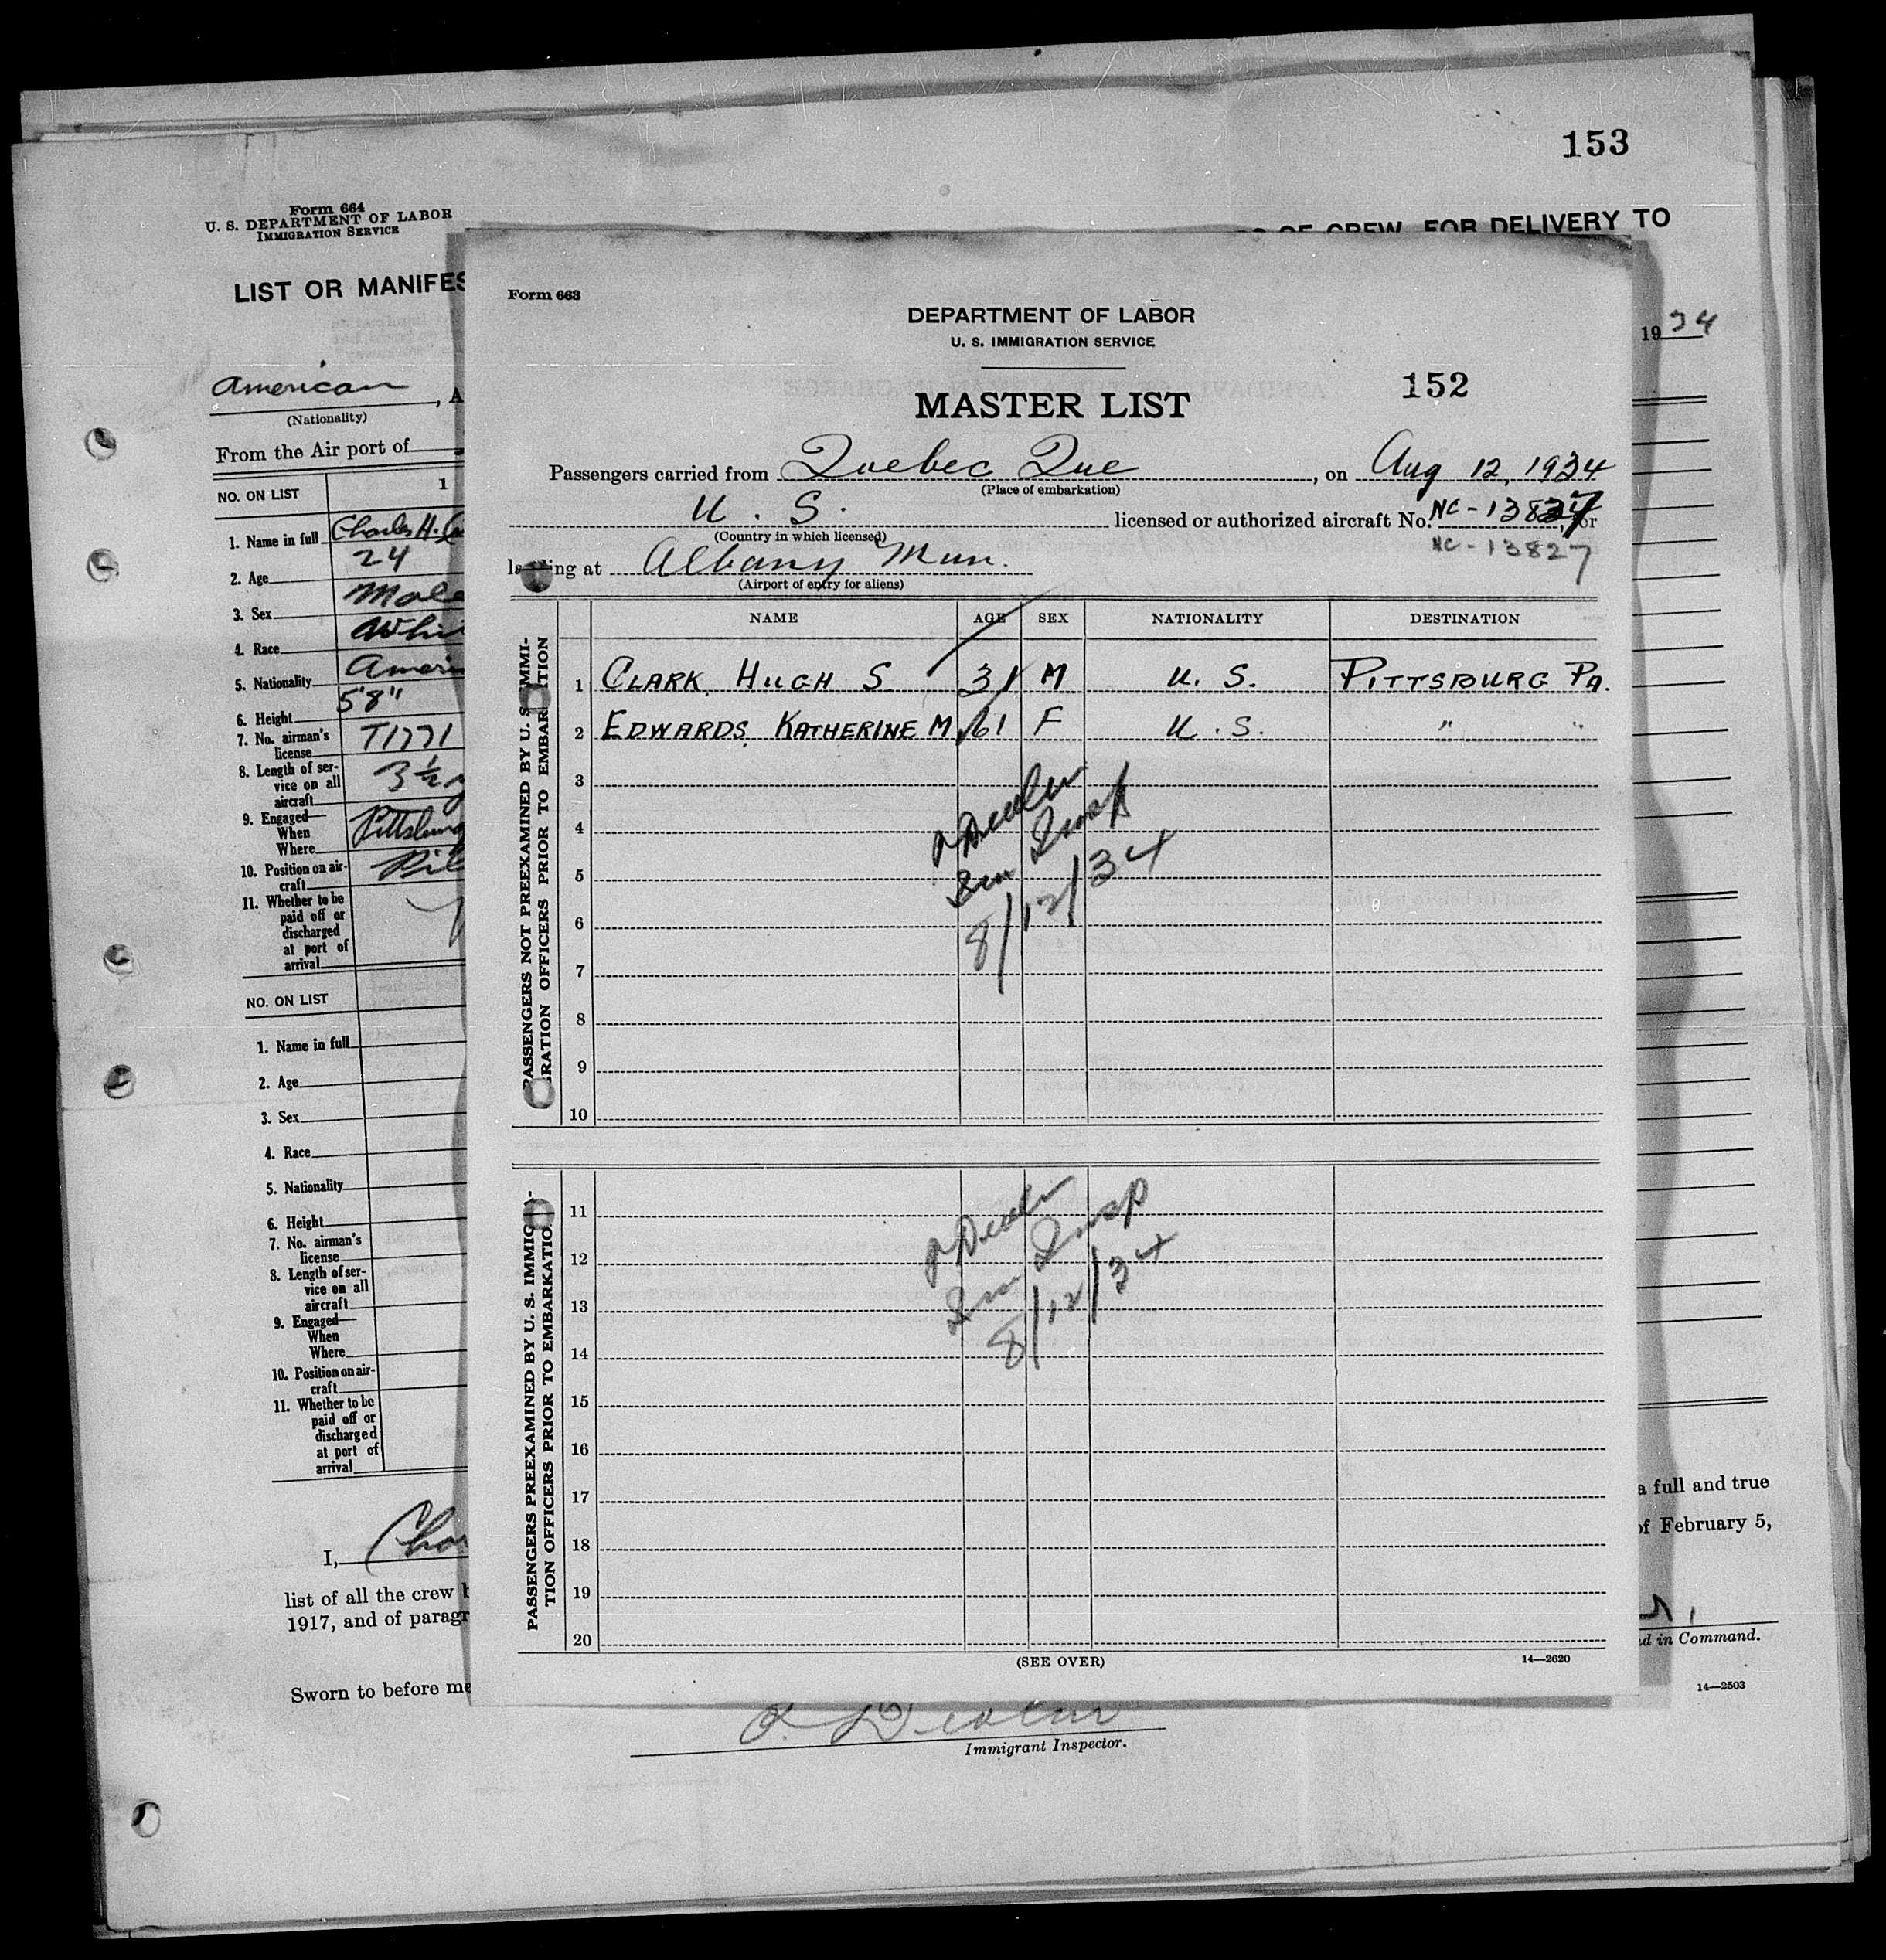 153
Form 664
U. S. DEPARTMENT OF LABOR
IMMIGRATION SERVICE
OF CREW, FOR DELIVERY TO
LIST OR MANIFES
1934
American, A
(Nationality)
From the Air port of
NO. ON LIST 1
1. Name in full Charles H.
2. Age 24
3. Sex Male
4. Race Whi
5. Nationality Ameri
6. Height 5'8"
7. No. airman's license T1771
8. Length of service on all aircraft 3½
9. Engaged—
When
Where Pittsburg
10. Position on aircraft Pil
11. Whether to be paid off or discharged at port of arrival
NO. ON LIST
1. Name in full
2. Age
3. Sex
4. Race
5. Nationality
6. Height
7. No. airman's license
8. Length of service on all aircraft
9. Engaged—
When
Where
10. Position on aircraft
11. Whether to be paid off or discharged at port of arrival
I, Cha
list of all the crew
1917, and of paragr
a full and true
of February 5,
d in Command.
Sworn to before me
14—2503
Immigrant Inspector.
Form 663
DEPARTMENT OF LABOR
U. S. IMMIGRATION SERVICE
152
MASTER LIST
Passengers carried from Quebec Que, on Aug 12, 1934
(Place of embarkation)
U. S. licensed or authorized aircraft No. NC-13827, or
(Country in which licensed)
NC-13827
landing at Albany Mun.
(Airport of entry for aliens)
NAME AGE SEX NATIONALITY DESTINATION
PASSENGERS NOT PREEXAMINED BY U. S. IMMIGRATION OFFICERS PRIOR TO EMBARKATION
1 CLARK, HUGH S. 31 M U. S. PITTSBURG PA.
2 EDWARDS, KATHERINE M. 61 F U. S. " "
3
4
5
6
7
8
9
10
Imm Insp
8/12/34
PASSENGERS PREEXAMINED BY U. S. IMMIGRATION OFFICERS PRIOR TO EMBARKATION
11
12
13
14
15
16
17
18
19
20
Imm Insp
8/12/34
(SEE OVER)
14—2620